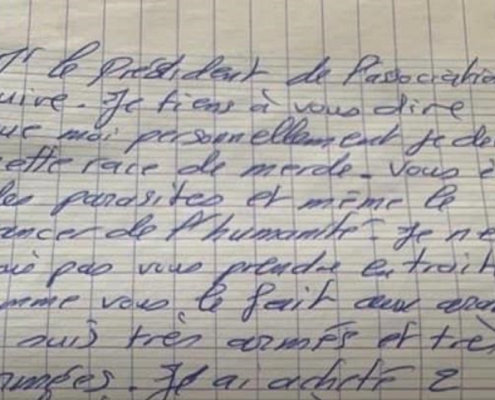 le Président de l'association
uive. Je tiens à vous dire
ue moi personnellement je de
ette race de merde. Vous ê
les parasites et même le
ancer de l'humanité. Je ne
pas vous prendre en trait
mme vous le fait aux ara
suis très armés et trè
. Je ai acheté 2